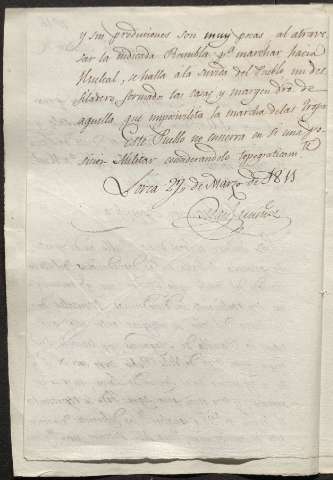 y sin produciones son muy pocas al atrave
sar la indicada Rambla pª marchar hacia
se halla a la salida del Pueblo un des
filadero, formado las casas y margen dro de
aquella que imposivilita la marcha de las tropas
Este Pueblo no encierra en si una po
sicion Militar considerandolo topograficamte
Lorca 29 de Marzo de 1811